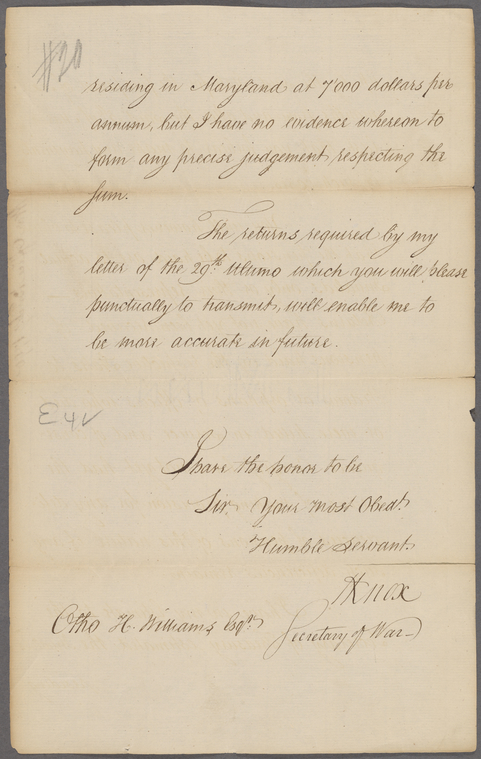 #20
residing in Maryland at 7000 dollars per
annum, but I have no evidence whereon to
form any precise judgement, respecting the
sum.
The returns, required by my
letter of the 29th. Ultimo which you will please
punctually to transmit, will enable me to
be more accurate in future.
I have the honor to be
Sir, Your most Obedt.
Humble Servant
HKnox
Secretary of War
Otho H. Williams Esqr.